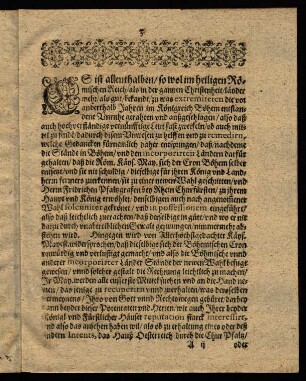 3
ES ist allenthalben / so wol im heiligen Rö-
mischen Reich / als in der gantzen Christenheit / länder
mehr / als gut / bekandt / zu was extremiteten die vor
anderthalb Jahren im Königreich Böhem entstan-
dene Unruhe gerahten und außgeschlagen / also daß
auch hochverständige vernünfftige Leut fast zweifeln / ob auch mit-
tel zu find / dadurch diesem Unwesen zu helffen und zu remediirn /
welche Gedancken fürnämlich daher entspringen / daß / nachdem
die Ständ in Böhem / und den incorporirten Ländern darfür
gehalten / daß die Röm. Käys. May. sich der Cron Böhem selbst
entsetzt / und sie nit schuldig / dieselbige für ihren König und Land-
herrn ferrner zuerkennen / sie zu einer neuen Wahl geschritten / und
Herrn Fridrichen Pfaltzgrafen bey Rhein Churfürsten / zu ihrem
Haupt und König erwöhlt / den selbigen auch nach angenommener
Wahl solenniter gekrönet / und in possessionem eingeführet /
also daß leichtlich zuerachten / daß derselbige in güte / und wo er nit
darzu durch unaußbleibliche Gewalt gezwungen / nimmermehr ab-
stehen wird. Hingegen wird von Allerhöchstgedachter Käys.
Mayest. widersprochen / daß dieselbige sich der Böhemischen Cron
unwürdig und verlüstigt gemacht / und also die Böhmische unnd
anderer incorporirter Länder Stände der neuen Wahl befugt
gewesen / unnd solcher gestalt die Rechnung leichtlich zu machen /
Ir May. werden alle eusserste Mittel suchen und an die Hand ne-
men / das jenige zu recuperirn unnd zuerhalten / was deroselben
ermeynens / Ihro von Gott unnd Rechtswegen gebüret / darbey
dann beyder dieser Potentaten und Herren / wie auch Ihrer beyder
Königl und Fürstlicher Häuser reputation starck interessirt,
und also das ansehen haben wil / als ob zu erhaltung eines oder deß
andern Intents, das Hauß Oesterreich durch die Chur Pfaltz /
A ij
oder